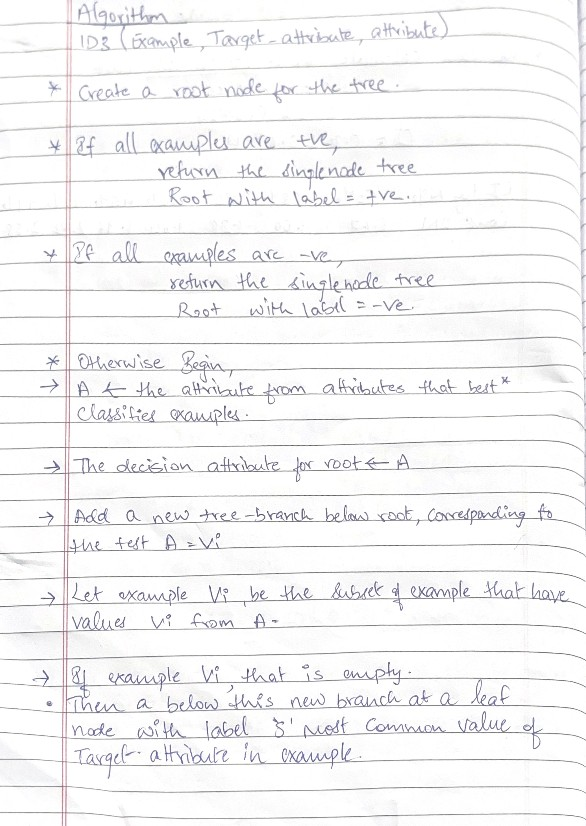 Algorithm
ID3 (Example, Target-attribute, attribute)
* Create a root node for the tree.
* If all examples are +ve,
return the singlenode tree
Root with label = +ve.
* If all examples are -ve,
return the singlenode tree
Root with label = -ve.
* Otherwise Begin,
→ A ← the attribute from attributes that best*
Classifies examples.
→ The decision attribute for root ← A
→ Add a new tree-branch below root, corresponding to
the test A = Vi
→ Let example Vi, be the subset of example that have
values Vi from A.
→ If example Vi, that is empty.
• Then a below this new branch at a leaf
node with label 's' most common value of
Target-attribute in example.